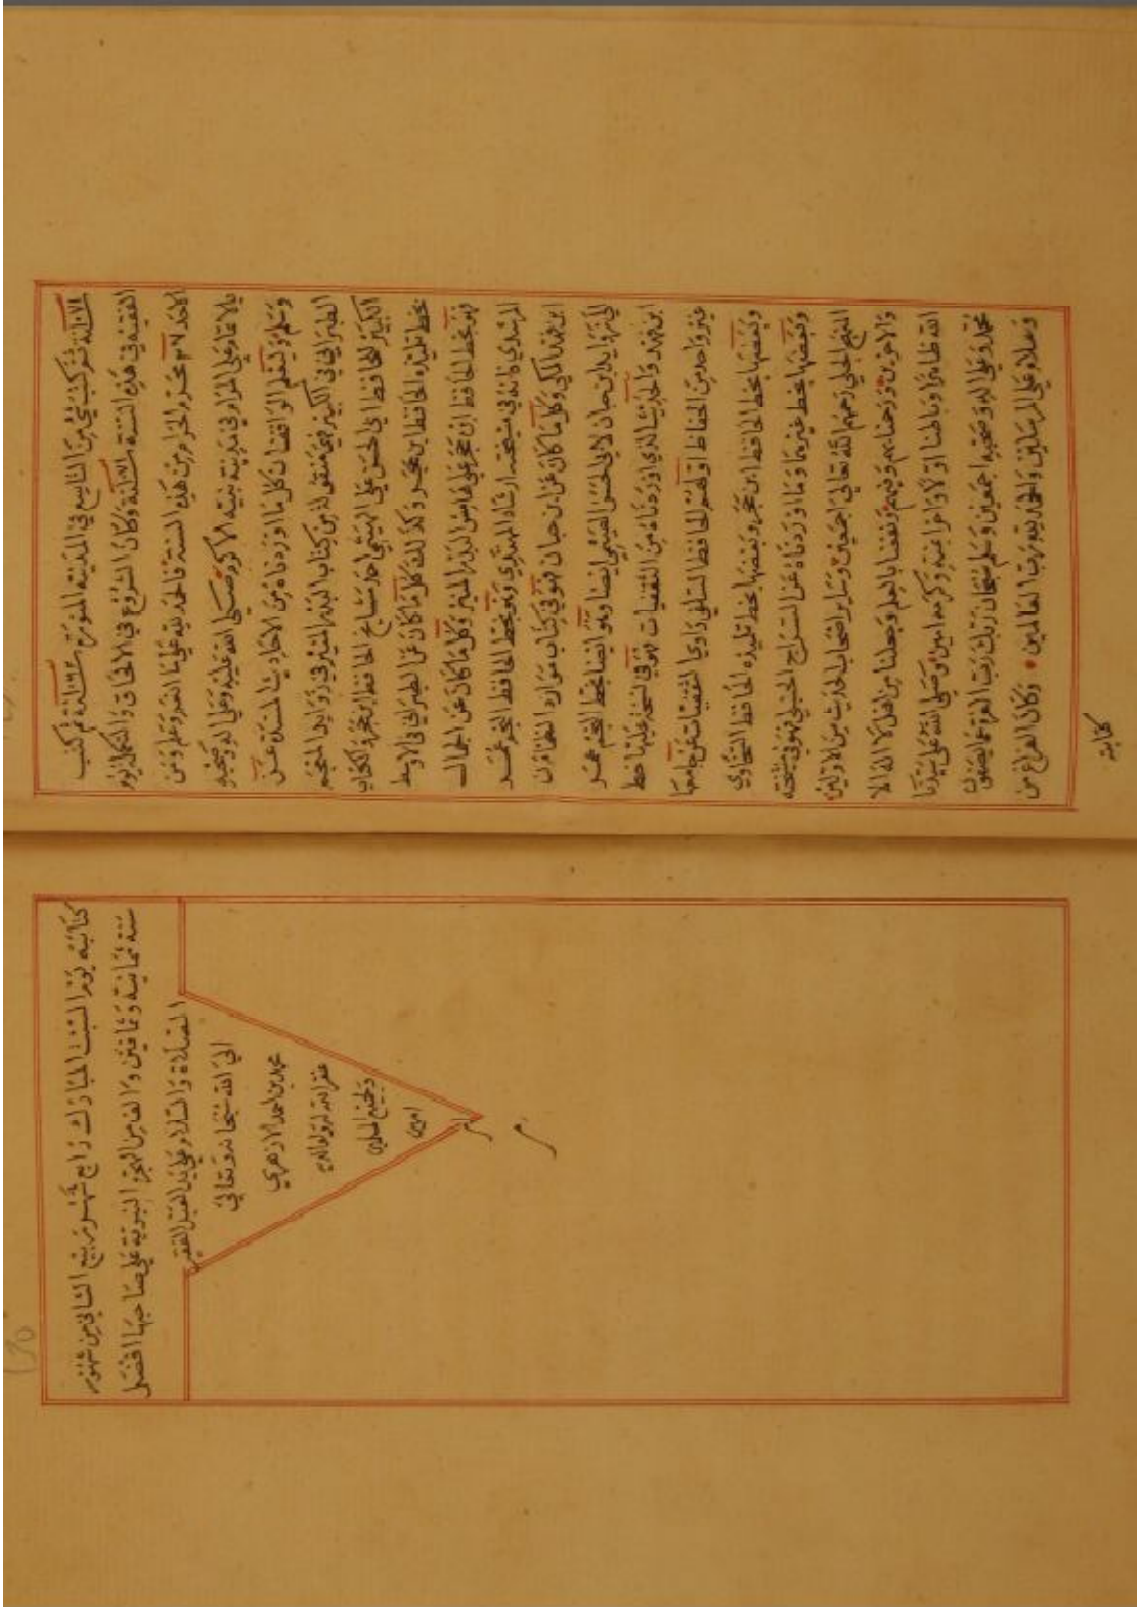 ثم كتب شيئا من التاسع في المدينة المنورة سنة ثم كتب
البقية في هذه السنة سنة وكان الشروع في الالحاق والتكميل يوم
الاحد ٧ محرم الحرام من هذه السنة فالحمد لله على ما وعلم ومن
على المرام في مدينة نبيه الاكرم صلى الله عليه وعلى اله وصحبه
وسلم وليعلم الواقف ان كل ما اوردناه من الاحاديث المسندة عن
الطبراني في الكبير فهي من كتاب البدر المنير في زوايد المعجم
الكبير للحافظ ابي الحسن علي الهيثمي احد مشايخ الحافظ ابن حجر والكتاب
بخط تلميذه الحافظ ابن حجر وكذلك كل ما كان عن الطبراني في الاوسط
فهو بخط الحافظ ابن حجر على هامش البدر المنير وكل ما كان عن الجمال
المرشدي فانه في مشيخته ارشاد المهتدي وهو بخط الحافظ النجم عمر
ابن فهد المكي وكل ما كان عن ابن حبان فهو في كتاب موارد الظمان
الى زوايد ابن حبان لابي الحسن الهيثمي ايضا وهو ايضا بخط النجم عمر
ابن فهد والحديث الذي اوردناه من الثقفيات فهو في نسخة عليها خط
غير واحد من الحفاظ اولهم الحافظ السلفي راوي الثقفيات عن جامعها
وبعضها بخط الحافظ ابن حجر وبعضها بخط تلميذه الحافظ السخاوي
وبعضها بخط غيرهما وما اوردناه عن السراج الحنبلي فهو في نسخته
النهج الجلي رحمهم الله تعالى اجمعين وساير اصحاب الحديث من الاولين
والاخرين ورحمنا بهم وفيهم ونفعنا بالعلم وجعلنا من اهل لا اله الا
الله ظاهرا وباطنا اولا واخرا بمنه وكرمه امين وصلى الله على سيدنا
محمد وعلى اله وصحبه اجمعين وسلم سبحان ربك رب العزة عما يصفون
وسلام على المرسلين والحمد لله رب العالمين وكان الفراغ من
كتابته
كتابته يوم السبت المبارك رابع شهر ربيع الثاني من شهور
سنة ثمانية وثمانين والف من الهجرة النبوية على صاحبها افضل
الصلاة والسلام على يد العبد الفقير
الى الله سبحانه وتعالى
محمد بن احمد الازهري
غفر الله له ولوالديه
ولجميع المسلمين
امين